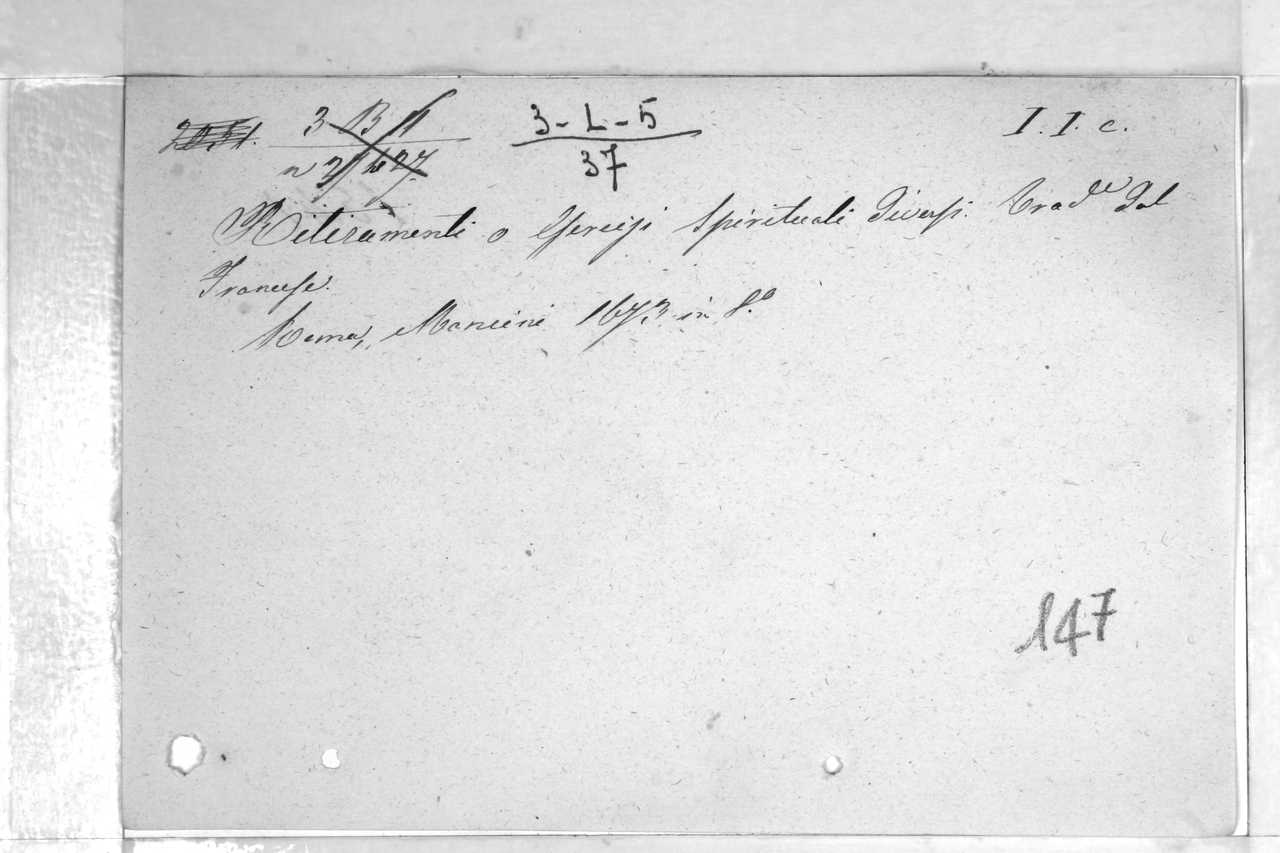 3 B 11 3-L-5 I. I. c.
37
Ritiramenti o Esercizi Spirituali diversi. Trad.e dal
Francese.
Roma, Mancini 1673 in 8.o
147